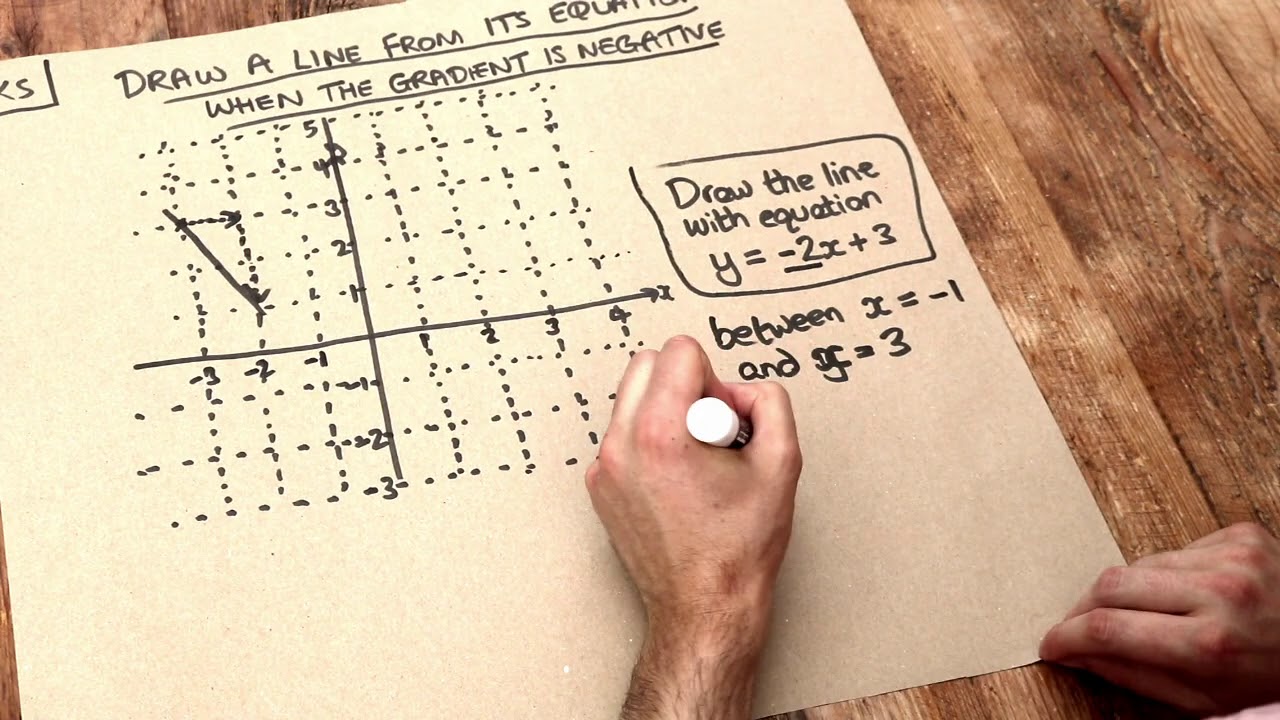 DRAW A LINE FROM ITS EQUATION
WHEN THE GRADIENT IS NEGATIVE
Draw the line
with equation
y = -2x + 3
between x = -1
and x = 3
5
4
3
2
1
x
-3 -2 -1 1 2 3 4
-1
-2
-3